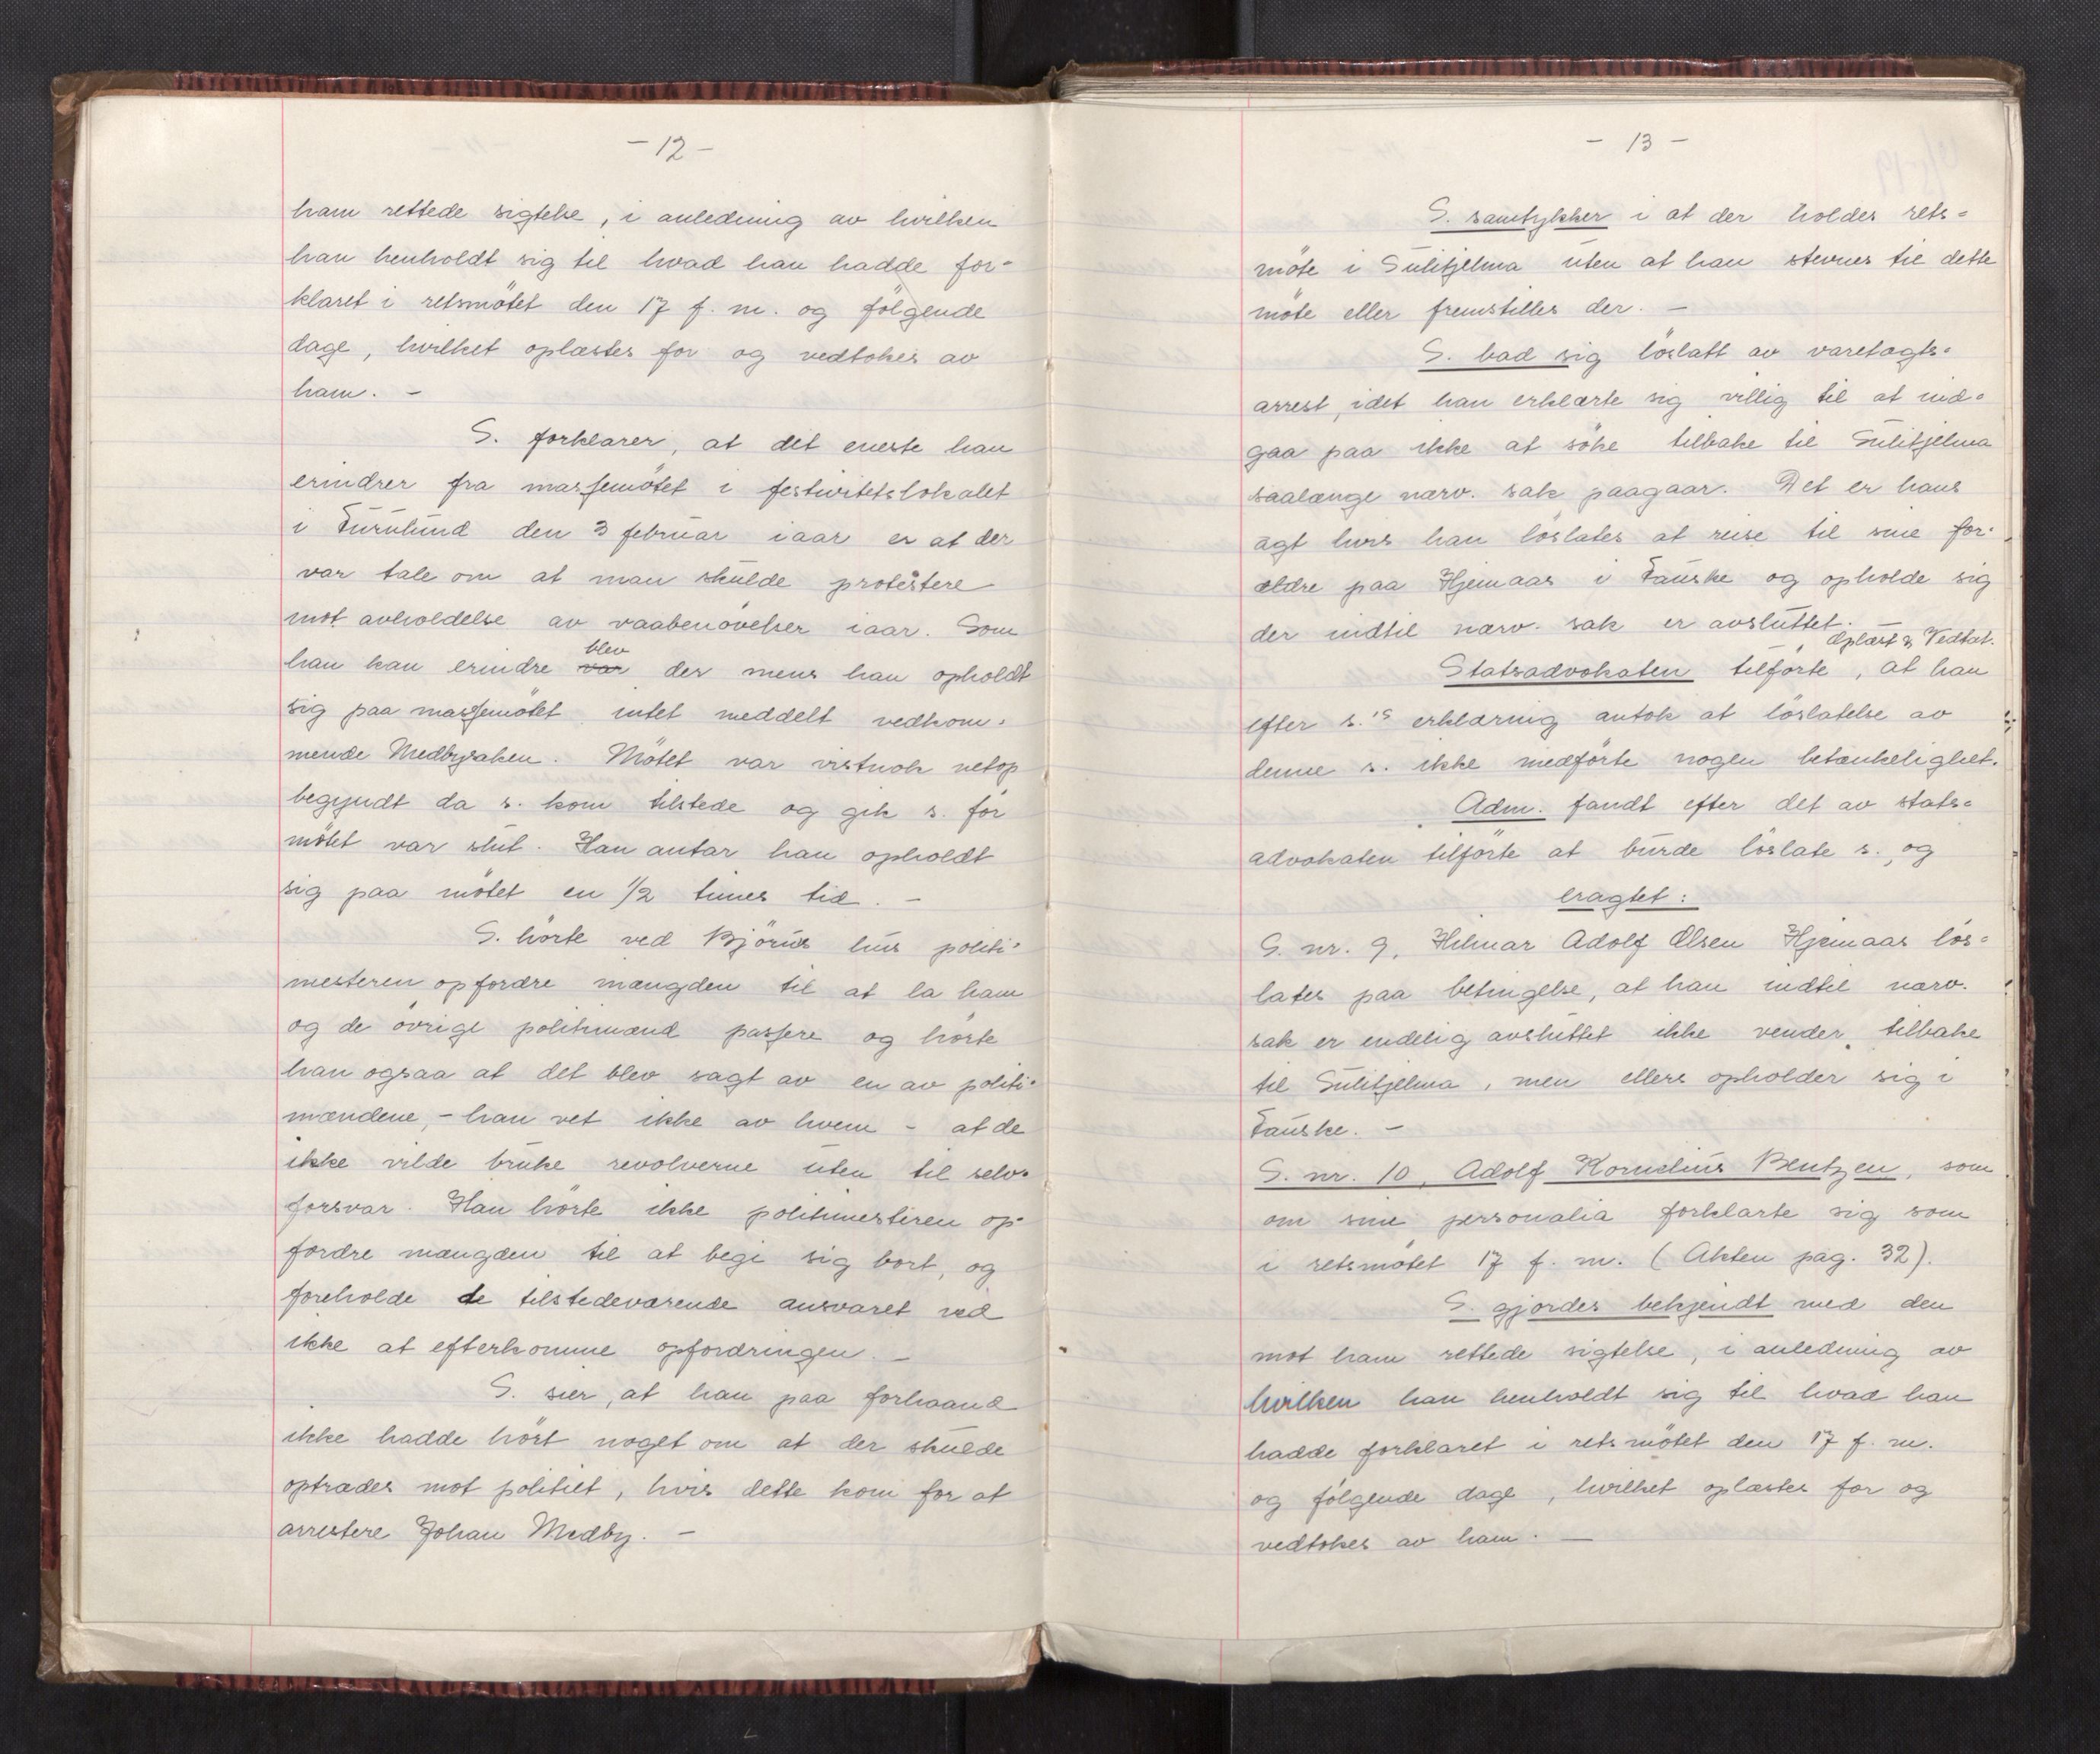 - 12 -
ham rettede sigtelse, i anledning av hvilken
han henholdt sig til hvad han hadde for-
klaret i retsmötet den 17 f. m. og fölgende
dage, hvilket oplæstes for og vedtokes av
ham. -
S. forklarer, at det eneste han
erindrer fra massemötet i festivitetslokalet
i Furulund den 3 februar iaar er at der
var tale om at man skulde protestere
mot avholdelse av vaabenövelser iaar. Som
blev
han kan erindre var der mens han opholdt
sig paa massemötet intet meddelt vedkom-
mende Medbysaken. Mötet var vistnok netop
begyndt da s. kom tilstede og gik s. för
mötet var slut. Han antar han opholdt
sig paa mötet en 1/2 times tid. -
S. hörte ved Björns hus politi-
mesteren opfordre mængden til at la ham
og de övrige politimænd passere og hörte
han ogsaa at det blev sagt av en av politi-
mændene, - han vet ikke av hvem - at de
ikke vilde bruke revolverne uten til selv-
forsvar. Han hörte ikke politimesteren op-
fordre mængden til at begi sig bort, og
foreholde de tilstedeværende ansvaret ved
ikke at efterkomme opfordringen. -
S. sier, at han paa forhaand
ikke hadde hört noget om at der skulde
optrædes mot politiet, hvis dette kom for at
arrestere Johan Medby. -
- 13 -
S. samtykker i at der holdes rets-
möte i Sulitjelma uten at han stevnes til dette
möte eller fremstilles der. -
S. bad sig löslatt av varetægts-
arrest, idet han erklærte sig villig til at ind-
gaa paa ikke at söke tilbake til Sulitjelma
saalænge nærv. sak paagaar. Det er hans
agt hvis han löslates at reise til sine for-
ældre paa Hjemaas i Fauske og opholde sig
der indtil nærv. sak er avsluttet. -
Oplæst & Vedtat.
Statsadvokaten tilförte, at han
efter s.'s erklæring antok at löslatelse av
denne s. ikke medförte nogen betænkelighet.
Adm. fandt efter det av stats-
advokaten tilförte at burde löslate s. og
eragtet:
S. nr. 9, Hilmar Adolf Olsen Hjemaas lös-
lates paa betingelse, at han indtil nærv.
sak er endelig avsluttet ikke vender tilbake
til Sulitjelma, men ellers opholder sig i
Fauske. -
S. nr. 10, Adolf Kornelius Bentzen, som
om sine personalia forklarte sig som
i retsmötet 17 f. m. (Akten pag. 32).
S. gjordes bekjendt med den
mot ham rettede sigtelse, i anledning av
hvilken han henholdt sig til hvad han
hadde forklaret i retsmötet den 17 f. m.
og fölgende dage, hvilket oplæstes for og
vedtokes av ham. -